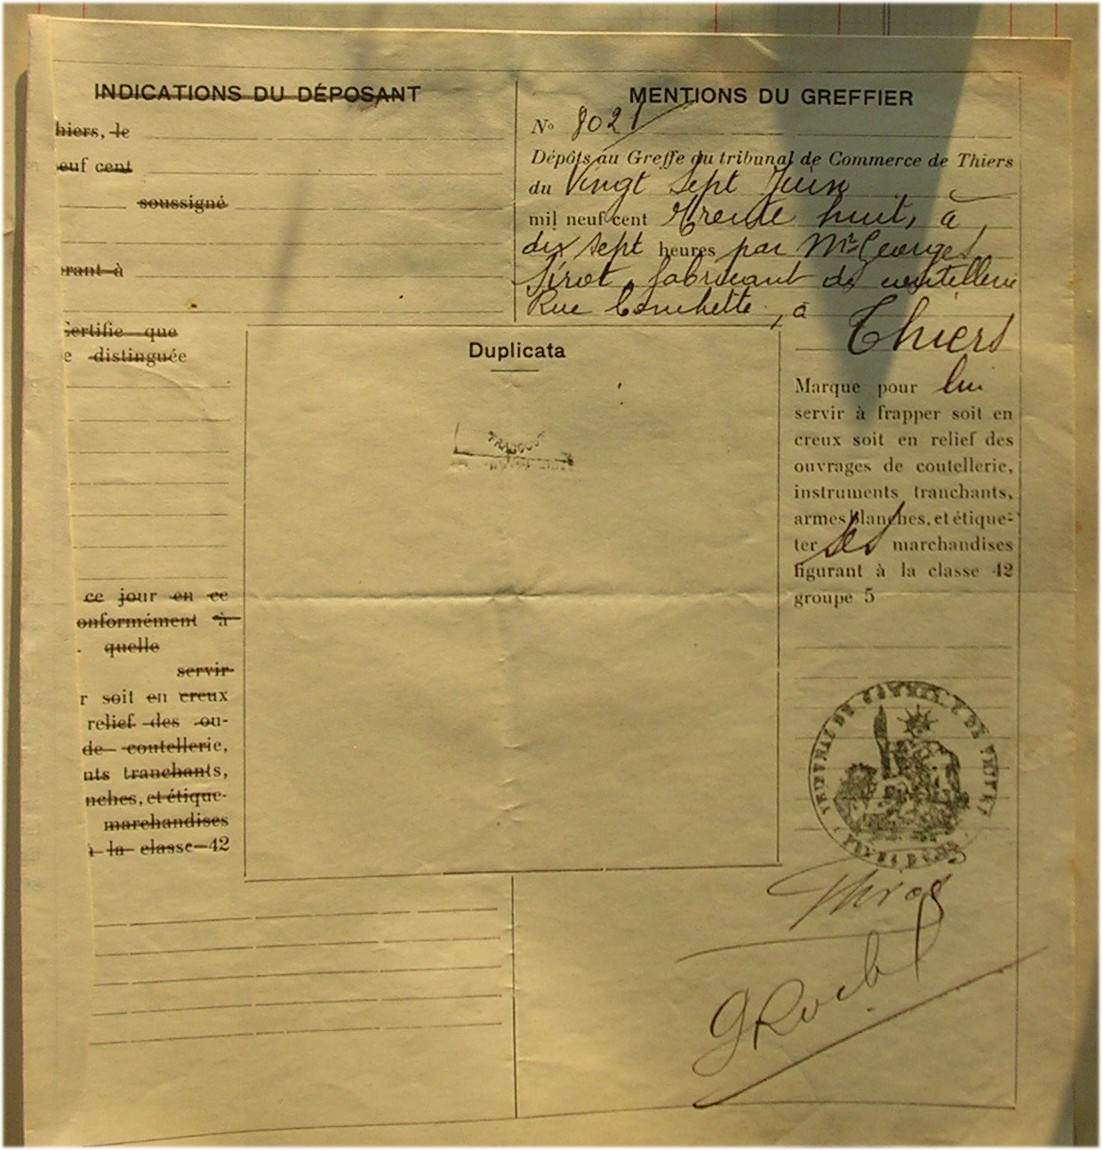 INDICATIONS DU DÉPOSANT
hiers, le
euf cent
soussigné
rant à
ertifie que
e distinguée
ce jour en ce
onformément à
quelle
servir
r soit en creux
relief des ou-
de coutellerie,
nts tranchants,
nches, et étique-
marchandises
à la classe 42
MENTIONS DU GREFFIER
No 8021
Dépôts au Greffe du tribunal de Commerce de Thiers
du Vingt Sept Juin
mil neuf cent trente huit, à
dix sept heures par Mr Georges
Sirot, fabricant de coutellerie
Rue Conchette, à
Thiers
Duplicata
Marque pour lui
servir à frapper soit en
creux soit en relief des
ouvrages de coutellerie,
instruments tranchants,
armes blanches, et étique-
ter ses marchandises
figurant à la classe 42
groupe 5
TRIBUNAL DE COMMERCE DE THIERS